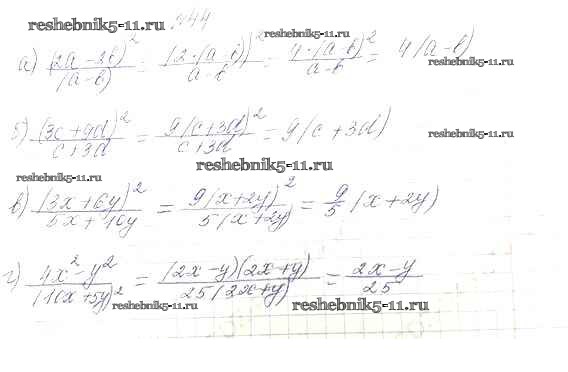 reshebnik5-11.ru № 444
reshebnik5-11.ru
а) (2a-2b)²/(a-b) = (2·(a-b))²/a-b = 4·(a-b)²/a-b = 4(a-b)
reshebnik5-11.ru
б) (3c+9d)²/c+3d = 9(c+3d)²/c+3d = 9(c+3d)
reshebnik5-11.ru
reshebnik5-11.ru
reshebnik5-11.ru
в) (3x+6y)²/5x+10y = 9(x+2y)²/5(x+2y) = 9/5 (x+2y)
г) 4x²-y²/(10x+5y)² = (2x-y)(2x+y)/25(2x+y) = 2x-y/25
reshebnik5-11.ru
reshebnik5-11.ru